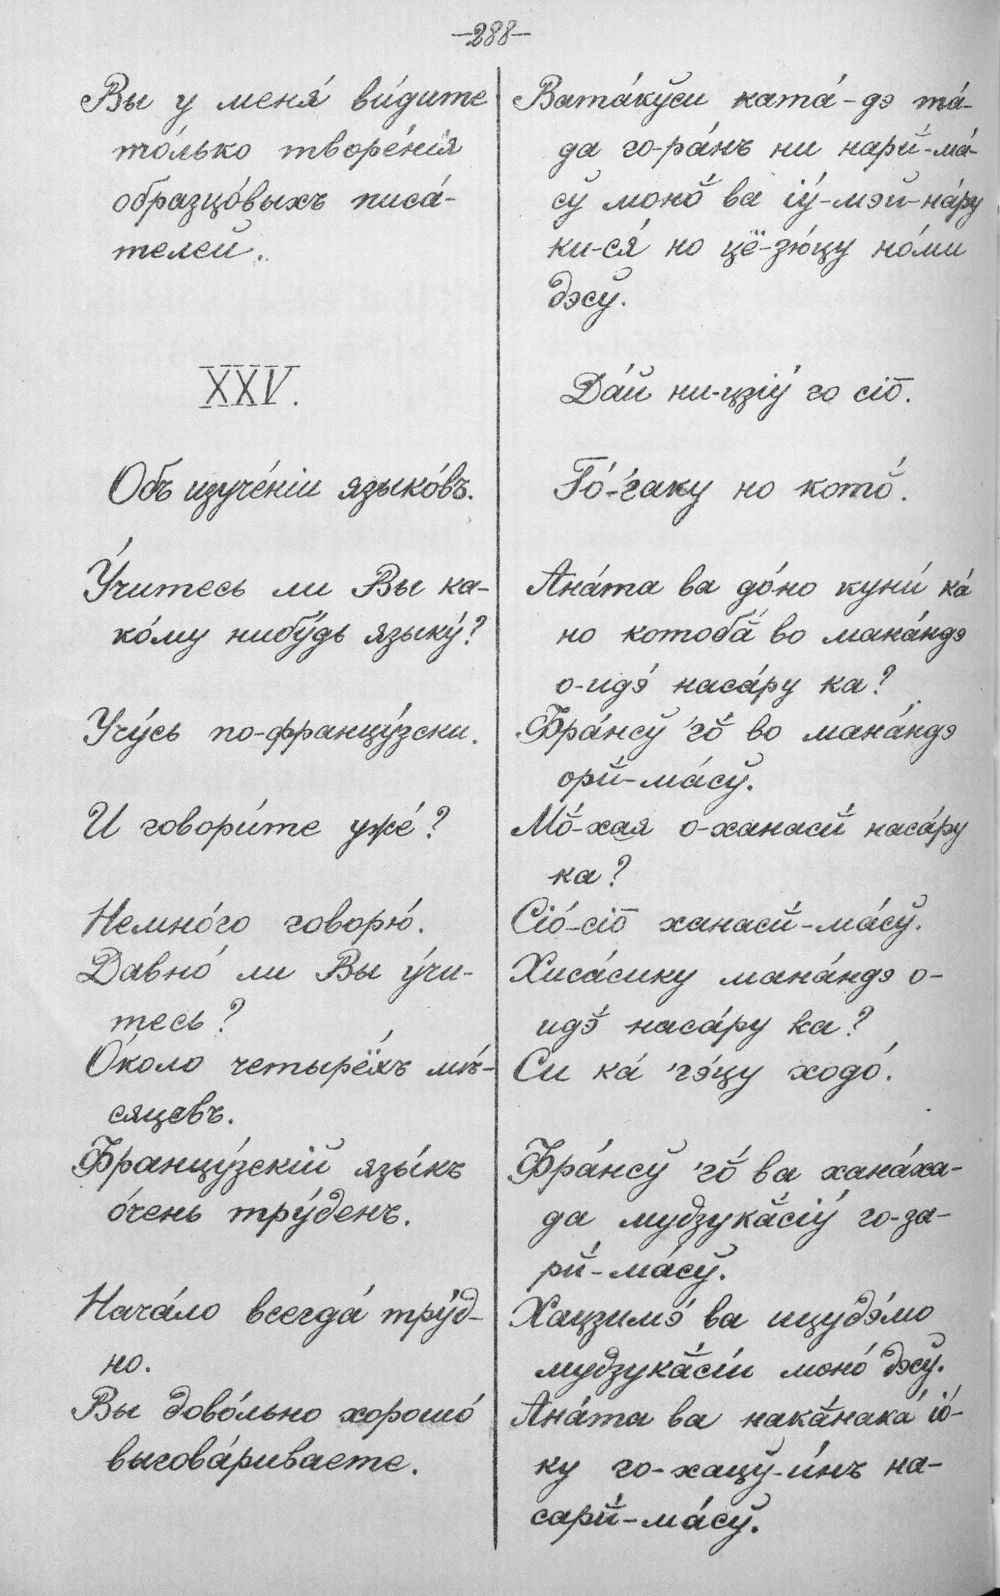 —288—
Вы у меня́ ви́дите
то́лько творе́нія
образцо́выхъ писа́-
телей.
XXV.
Объ изуче́ніи языко́въ.
У́читесь ли Вы ка-
ко́му нибу́дь языку́?
Учу́сь по-францу́зски.
И говори́те уже́?
Немно́го говорю́.
Давно́ ли Вы у́чи-
тесь?
О́коло четырёхъ мѣ́-
сяцевъ.
Францу́зскій язы́къ
о́чень тру́денъ.
Нача́ло всегда́ тру́д-
но.
Вы дово́льно хорошо́
выгова́риваете.
Вата́кўси ката́-дэ та́-
да го-ра́нъ ни нарй-ма́-
сў моно̆ ва ію́-мэй-на́ру
ки-ся́ но цё-зю́цу но́ми
дэсў.
Да́й ни-цзіу́ го сіо̄.
Го́-гаку но кото̆.
Ана́та ва до́но куни́ ка́
но котобӑ во мана́ндэ
о-идэ́ наса́ру ка?
Фра́нсў 'го̆ во мана́ндэ
орй-ма́сў.
Мо̆-хая о-ханасй наса́ру
ка?
Сіо́-сіо̄ ханасй-ма́сў.
Хиса́сику мана́ндэ о-
идэ̆ наса́ру ка?
Си ка́ 'гэ́цу ходо́.
Фра́нсў 'го̆ ва хана́ха-
да мудзукӑсіу́ го-за-
рй-ма́сў.
Хацзимэ́ ва ицудэ́мо
мудзукӑсі́и моно́ дэсў.
Ана́та ва накӑнака́ іо́-
ку го-хацў-и́нъ на-
сарй-ма́сў.